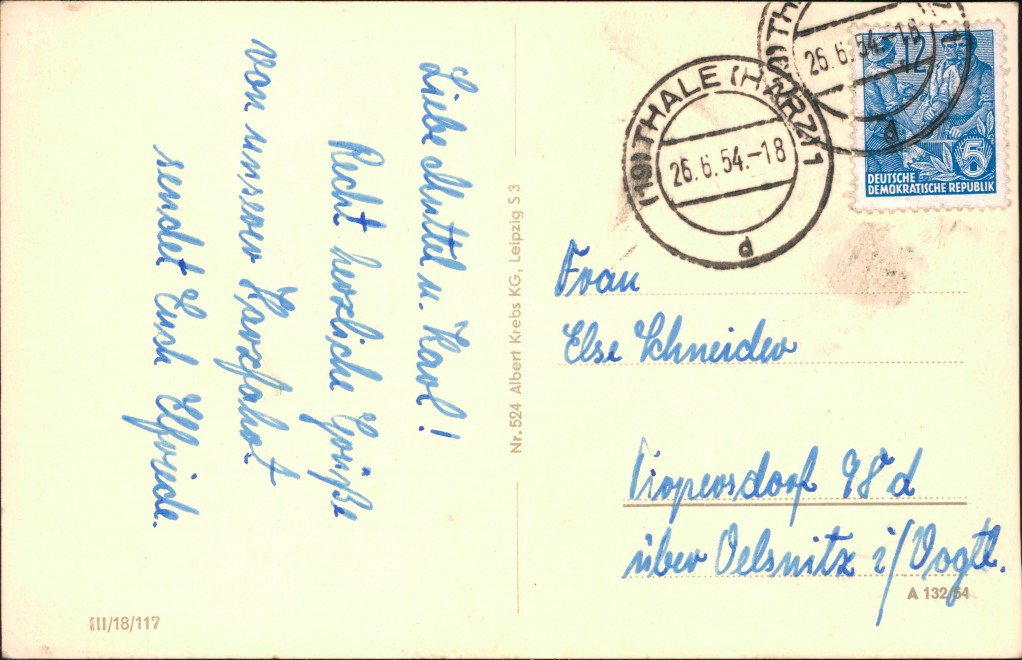 Liebe Muttel u. Karl!
Recht herzliche Grüße
von unserer Harzfahrt
sendet Euch Elfriede.
III/18/117
Nr. 524 Albert Krebs KG, Leipzig S 3
(19) THALE (HARZ) 1
26.6.54.-18
d
26.6.54.-18
d
12
5
DEUTSCHE
DEMOKRATISCHE REPUBLIK
Frau
Else Schneider
98 d
über Oelsnitz i/Vogtl.
A 132/54